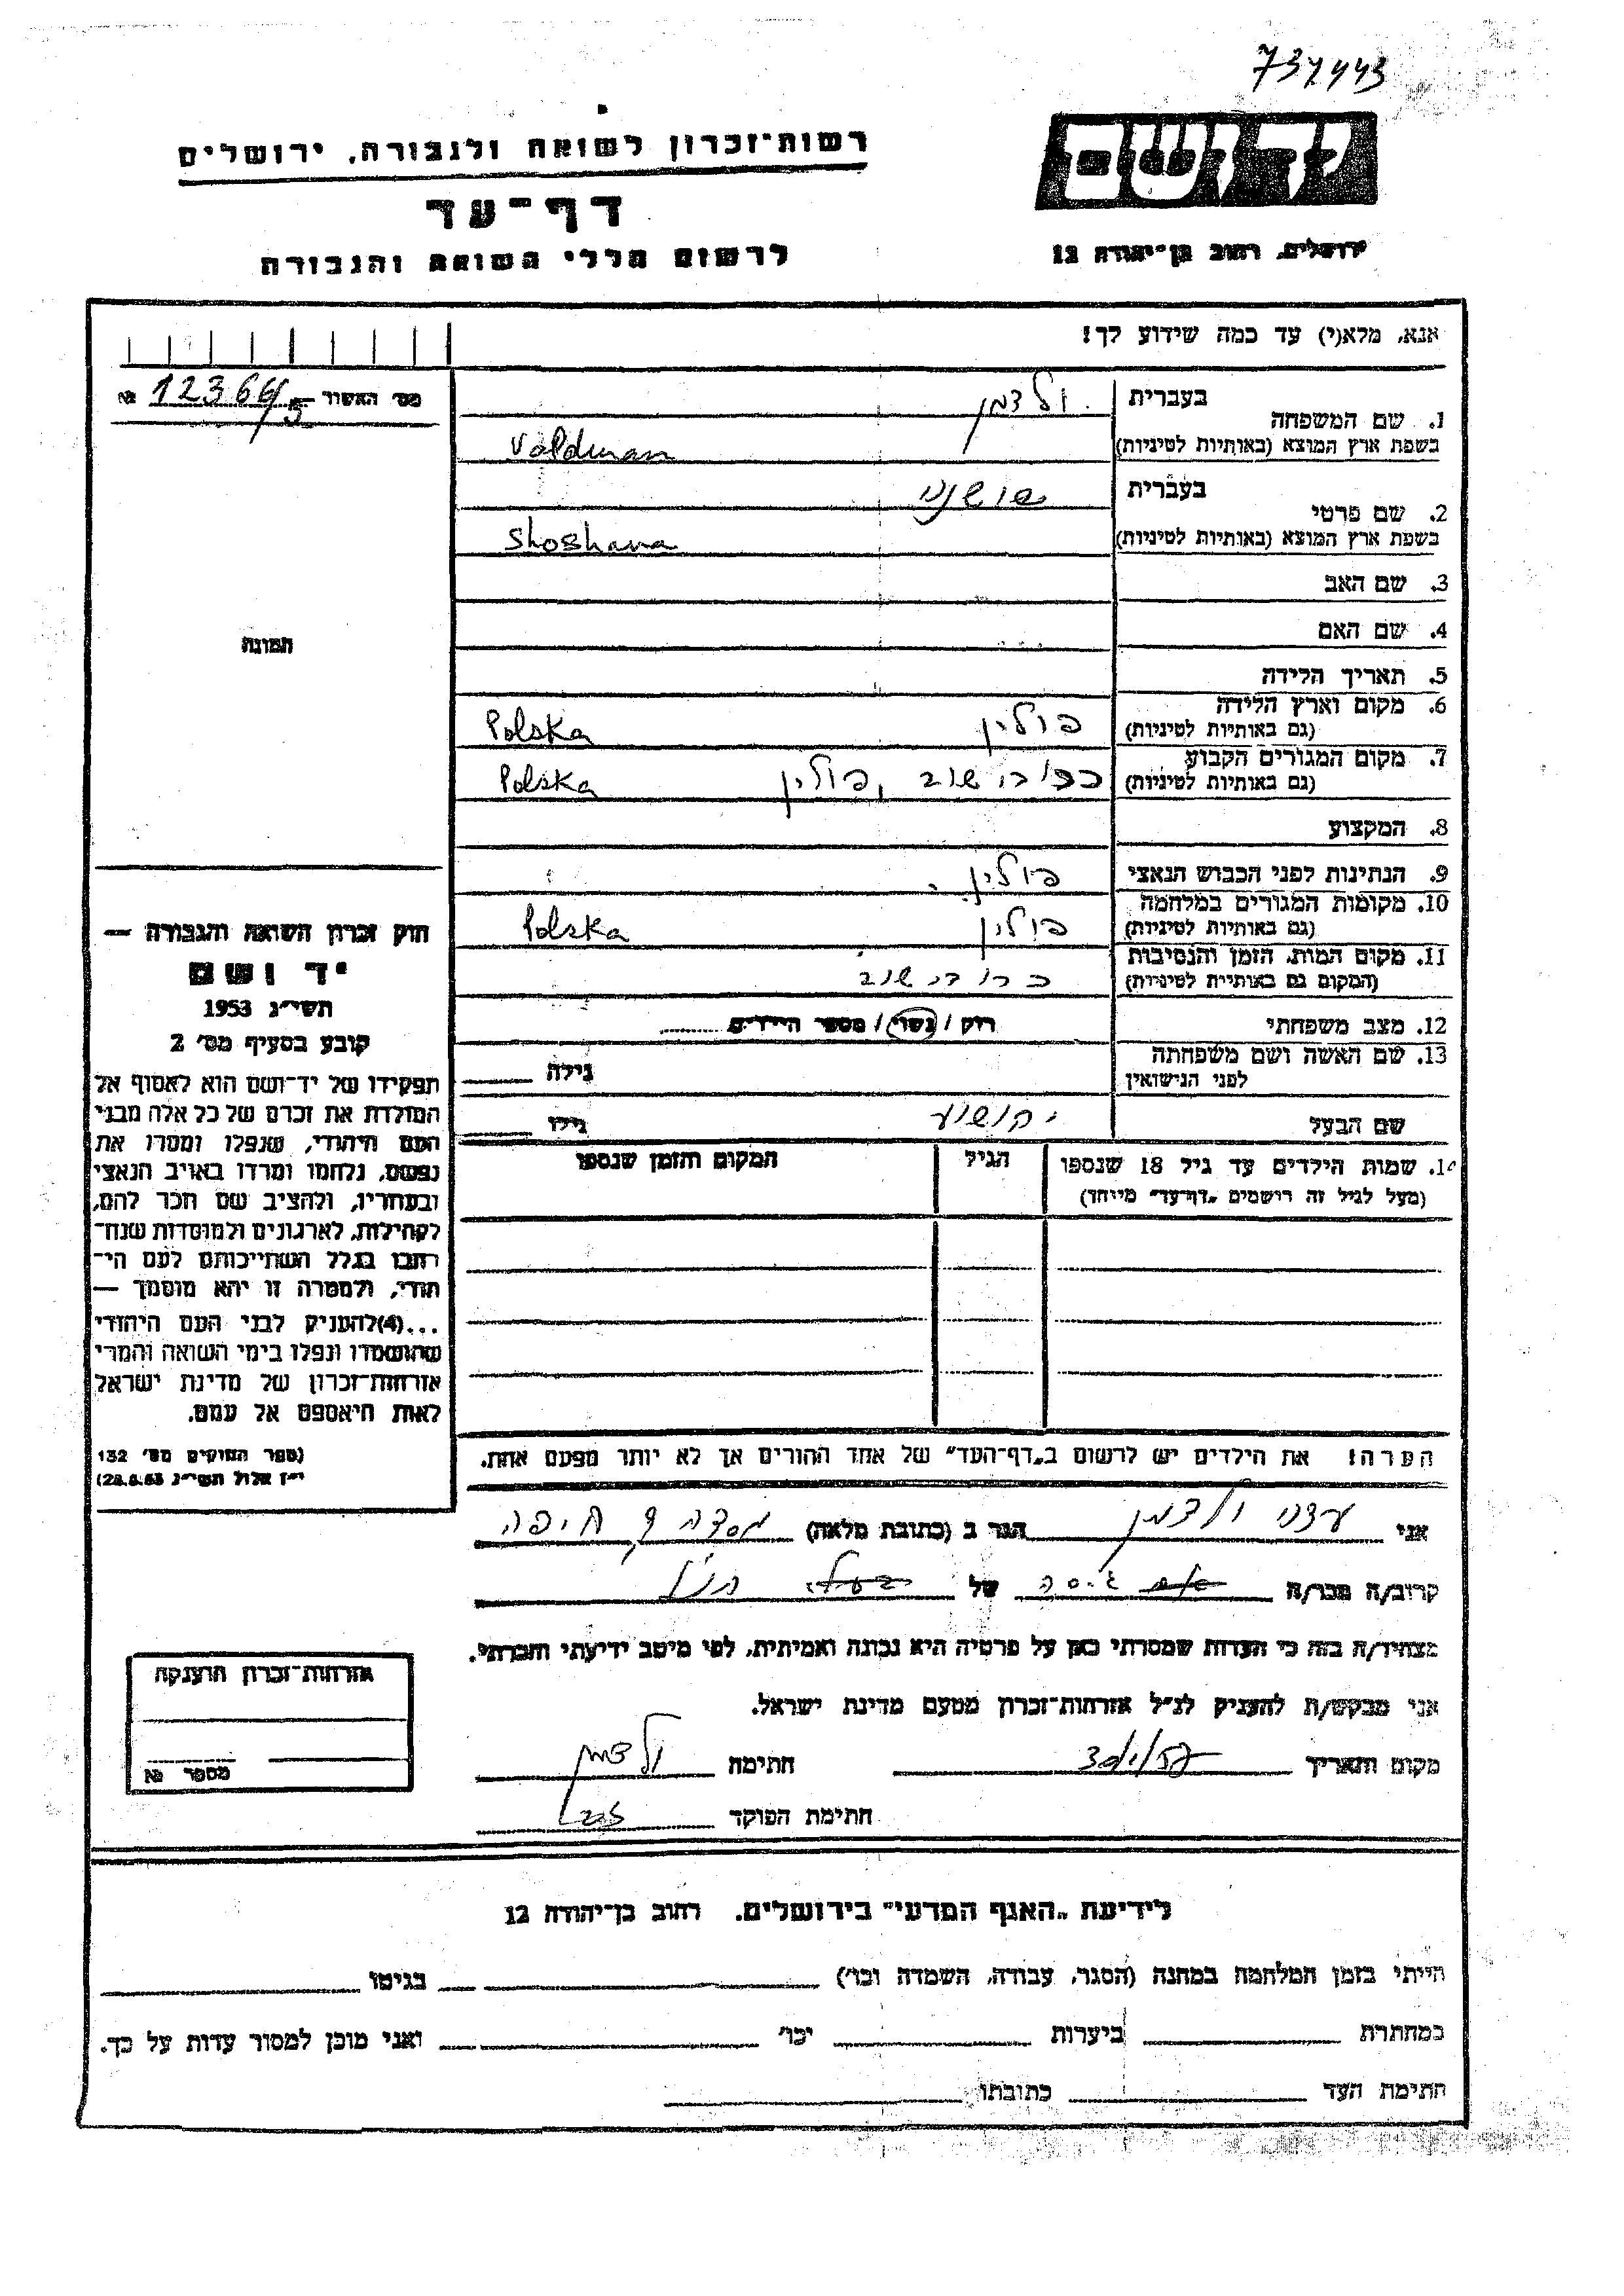 737443
יד ושם
רשות־זכרון לשואה ולגבורה, ירושלים
דף־עד
לרשום חללי השואה והגבורה
ירושלים, רחוב בן־יהודה 12
אנא, מלא(י) עד כמה שידוע לך!
מס׳ האשור № 12366/5
1. שם המשפחה
בעברית ולדמן
בשפת ארץ המוצא (באותיות לטיניות) Valdman
2. שם פרטי
בעברית שושנה
בשפת ארץ המוצא (באותיות לטיניות) Shoshana
3. שם האב
4. שם האם
5. תאריך הלידה
6. מקום וארץ הלידה
(גם באותיות לטיניות) פולין Polska
7. מקום המגורים הקבוע
(גם באותיות לטיניות) פולין Polska
8. המקצוע
9. הנתינות לפני הכבוש הנאצי פולין
10. מקומות המגורים במלחמה
(גם באותיות לטיניות) פולין Polska
11. מקום המות, הזמן והנסיבות
(המקום גם באותיות לטיניות)
12. מצב משפחתי רווק / נשוי / מספר הילדים
13. שם האשה ושם משפחתה
לפני הנישואין גילה
שם הבעל גילו
14. שמות הילדים עד גיל 18 שנספו הגיל המקום והזמן שנספו
(מעל לגיל זה רושמים „דף־עד״ מיוחד)
הערה! את הילדים יש לרשום ב„דף־העד״ של אחד ההורים אך לא יותר מפעם אחת.
תמונה
חוק זכרון השואה והגבורה —
יד ושם
תשי״ג 1953
קובע בסעיף מס׳ 2
תפקידו של יד־ושם הוא לאסוף אל
המולדת את זכרם של כל אלה מבני
העם היהודי, שנפלו ומסרו את
נפשם, נלחמו ומרדו באויב הנאצי
ובעוזריו, ולהציב שם וזכר להם,
לקהילות, לארגונים ולמוסדות שנח־
רבו בגלל השתייכותם לעם הי־
הודי, ולמטרה זו יהא מוסמך —
...(4)להעניק לבני העם היהודי
שהושמדו ונפלו בימי השואה והמרי
אזרחות־זכרון של מדינת ישראל
לאות היאספם אל עמם.
(ספר החוקים מס׳ 132
י״ז אלול תשי״ג 28.8.53)
אני ולדמן הגר ב (כתובת מלאה) חיפה
קרוב/ה מכר/ה גיסה של
מצהיר/ה בזה כי העדות שמסרתי כאן על פרטיה היא נכונה ואמיתית, לפי מיטב ידיעתי והכרתי.
אני מבקש/ת להעניק לנ״ל אזרחות־זכרון מטעם מדינת ישראל.
מקום ותאריך חתימה ולדמן
חתימת הפוקד
אזרחות־זכרון הוענקה
מספר №
לידיעת „האגף המדעי״ בירושלים, רחוב בן־יהודה 12
הייתי בזמן המלחמה במחנה (הסגר, עבודה, השמדה וכו׳) בגיטו
במחתרת ביערות וכו׳ ואני מוכן למסור עדות על כך.
חתימת העד כתובתו